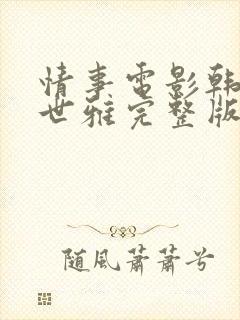 情事電影韩
世雅完整版
随風蕭蕭兮